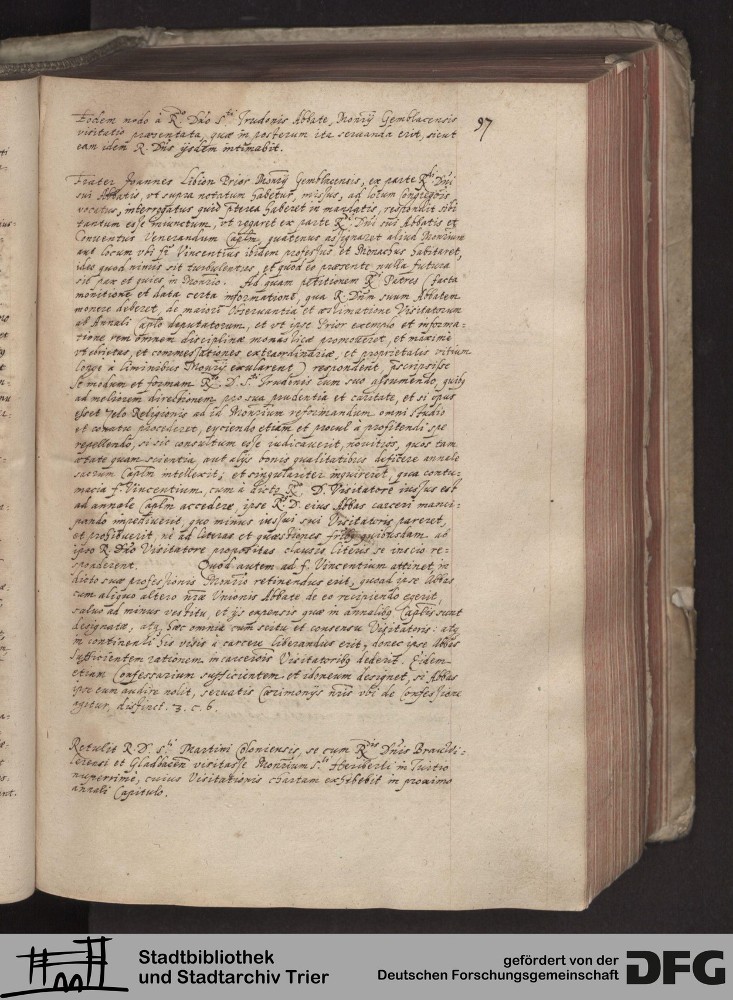 Eodem modo à R.do Dno S.ti Trudonis Abbate, Monrij Gemblacensis
97
visitatio praesentata, quae in posterum ita seruanda erit, sicut
eam idem R. Dns ijsdem intimabit.
Frater Joannes Libion Prior Monrij Gemblacensis, ex parte R.di Dni
sui Abbatis, vt supra notatum habetur, missus, ad locum
vocatus, interrogatus quid pterea haberet in mandatis, respondit sibi
tantum esse iniunctum, vt rogaret ex parte R.di Dni sui Abbatis et
Conuentus Venerandum Caplm, quatenus assignaret aliud Monrium
aut locum vbi fr. Vincentius ibidem professus et Monachus habitaret,
ideo quod nimis sit turbulentus, et quod eo presente nulla futura
sit pax et quies in Monrio. Ad quam petitionem R.di Patres (facta
monitione et data certa informatione, qua R. Dnm suum Abbatem
monere deberet, de maiori obseruantia et aestimatione Visitatorum
ab Annali Caplo deputatorum, et vt ipse Prior exemplo et informa-
tione rem omnem disciplinae monasticae promoueret, et maximè
vt ebrietas, et commessationes extraordinariae, et proprietatis vitium
longe à liminibus Monrij exularent) respondent pscripsisse
se modum et formam R.do D. S.ti Trudonis cum suo assumendo, quibus
ad meliorem directionem pro sua prudentia et caritate, et si opus
esset zelo Religionis ad id Monrium reformandum omni studio
et conatu procederet, eijciendo etiam et procul à profitendi spe
repellendo, si sit consultum esse iudicauerit, nouitios, quos tam
aetate quam scientia, aut alijs bonis qualitatibus deficere annale
sacrum Caplm intellexit; et singulariter inquireret, qua contu-
macia f. Vincentium, cum à dicto R.do D. Visitatore iussus est
ad annale Caplm accedere, ipse R.D. eius Abbas carceri manci-
pando impediuerit, quo minus iussui sui Visitatoris pareret,
et prohibuerit, ne ad literas et quaestiones quibusdam ab
ipso R. Dno Visitatore propositas clausis literis se inscio re-
sponderent. Quod autem ad f. Vincentium attinet, in
dicto suae professionis Monrio retinendus erit, quoad ipse Abbas
cum aliquo altero nrae Vnionis Abbate de eo recipiendo egerit,
saluo ad minus vestitu, et ijs expensis quae in annalibus Caplis sunt
designatae, atq. hoc omnia cum scitu et consensu Visitatoris: atq.
in continenti his visis à carcere liberandus erit, donec ipse Abbas
sufficientem rationem incarceris Visitatoribus dederit. Eidem
etiam Confessarium sufficientem et idoneum designet, si Abbas
ipse eum audire nolit, seruatis Caerimonijs nris vbi de Confessione
agitur, distinct. 3. c. 6.
Retulit R.D. S.ti Martini Coloniensis, se cum R.dis Dnis Brauwi-
lerensi et Gladbacen visitasse Monrium S.ti Heriberti in Tuitio
nuperrimè, cuius Visitationis chartam exhibebit in proximo
annali Capitulo.
Stadtbibliothek
und Stadtarchiv Trier
gefördert von der
Deutschen Forschungsgemeinschaft
DFG